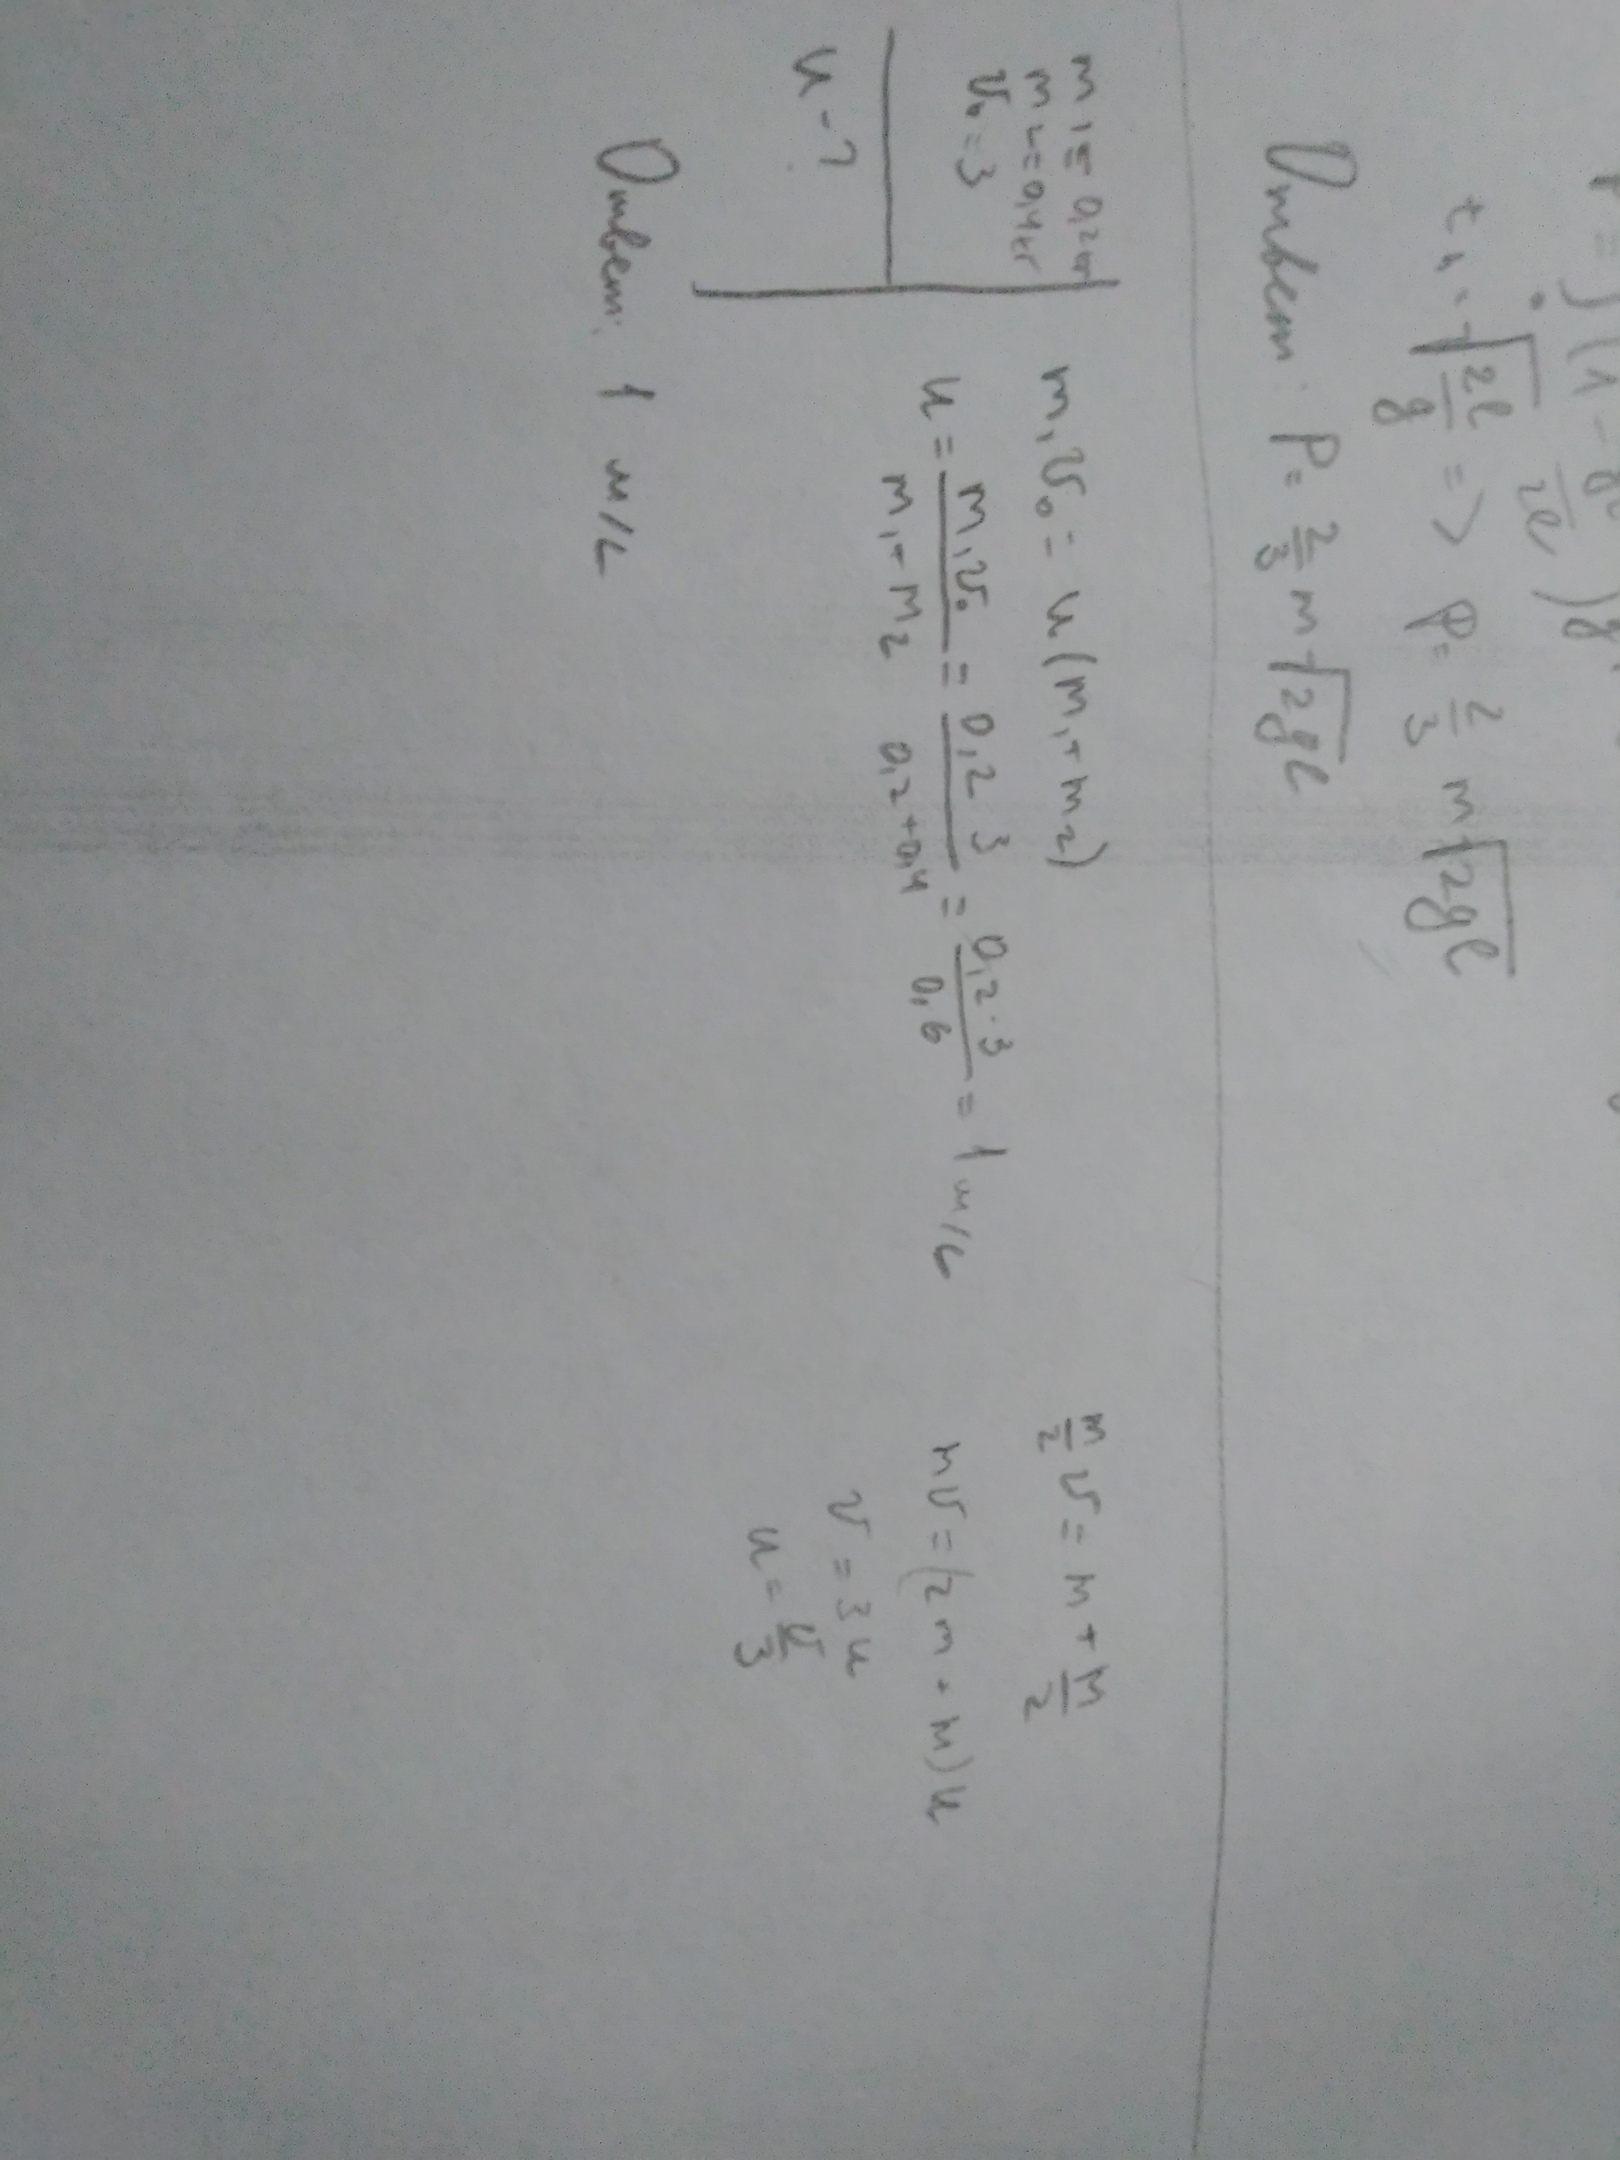 P = ∫(1 - g
2l
t₁ = √(2l/g) => p = 2/3 m√(2gl)
Ответ: P = 2/3 m√(2gl)
m₁ = 0,2 кг
m₂ = 0,4 кг
v₀ = 3
u - ?
m₁v₀ = u(m₁ + m₂)
u = m₁v₀/(m₁ + m₂) = 0,2 3/(0,2 + 0,4) = 0,2 · 3/0,6 = 1 м/с
Ответ: 1 м/с
m/2 v = m + m/2
mv = (2m + m)u
v = 3u
u = v/3